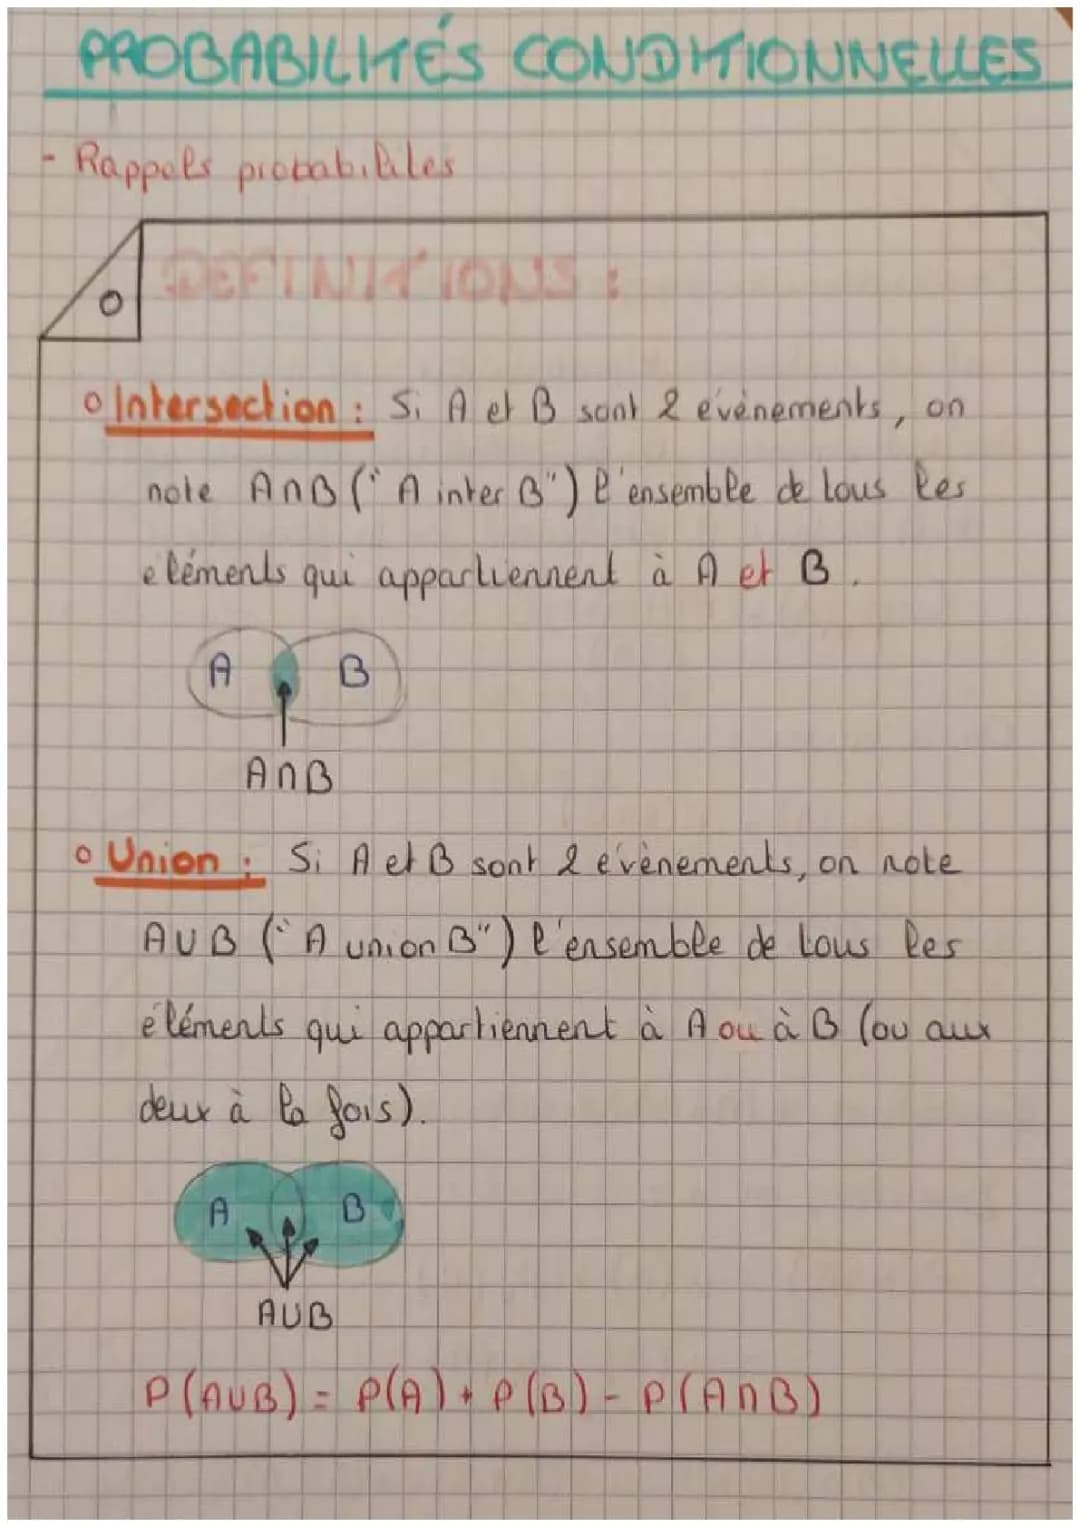 PROBABILITÉS CONDITIONNELLES
- Rappels probabilites
DEFINITIONS :
o Intersection : Si A et B sont 2 evénements, on
note A∩B ("A inter B") l'ensemble de tous les
eléments qui appartiennent à A et B.
A B
A∩B
o Union : Si A et B sont 2 evènements, on note
A∪B ("A union B") l'ensemble de tous les
eléments qui appartiennent à A ou à B (ou aux
deux à la fois).
A B
A∪B
P(A∪B) = P(A) + P(B) - P(A∩B)